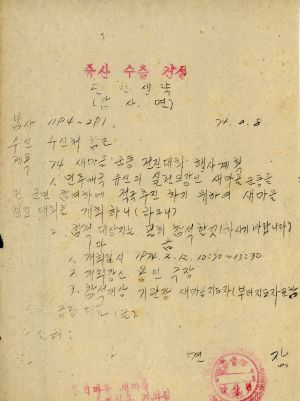 증산 수출 건설
민원생략
(남사면)
남사 1194-291 74. 2. 8
수신 수신처 참조
제목 74 새마을 운동 전진대회 행사계획
1. 민주애국 유신의 실천도장인 새마을 운동을
전 군민 참여하에 적극추진 하기 위하여 새마을
전진 대회를 개최 하니 (하오니)
2. 참석 대상자는 필히 참석할것 (하시기 바랍니다)
다 음
1. 개최일시 1974. 2. 12. 10:30~13:30
2. 개최장소 용인 극장
3. 참석대상 기관장 새마을지도자 (부녀지도자포함)
면 장
새마음 새마을